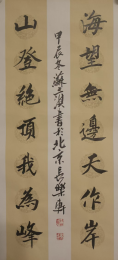 海望無邊天作岸
山登絕頂我為峰
甲辰冬蘇士澍書於北京長樂軒